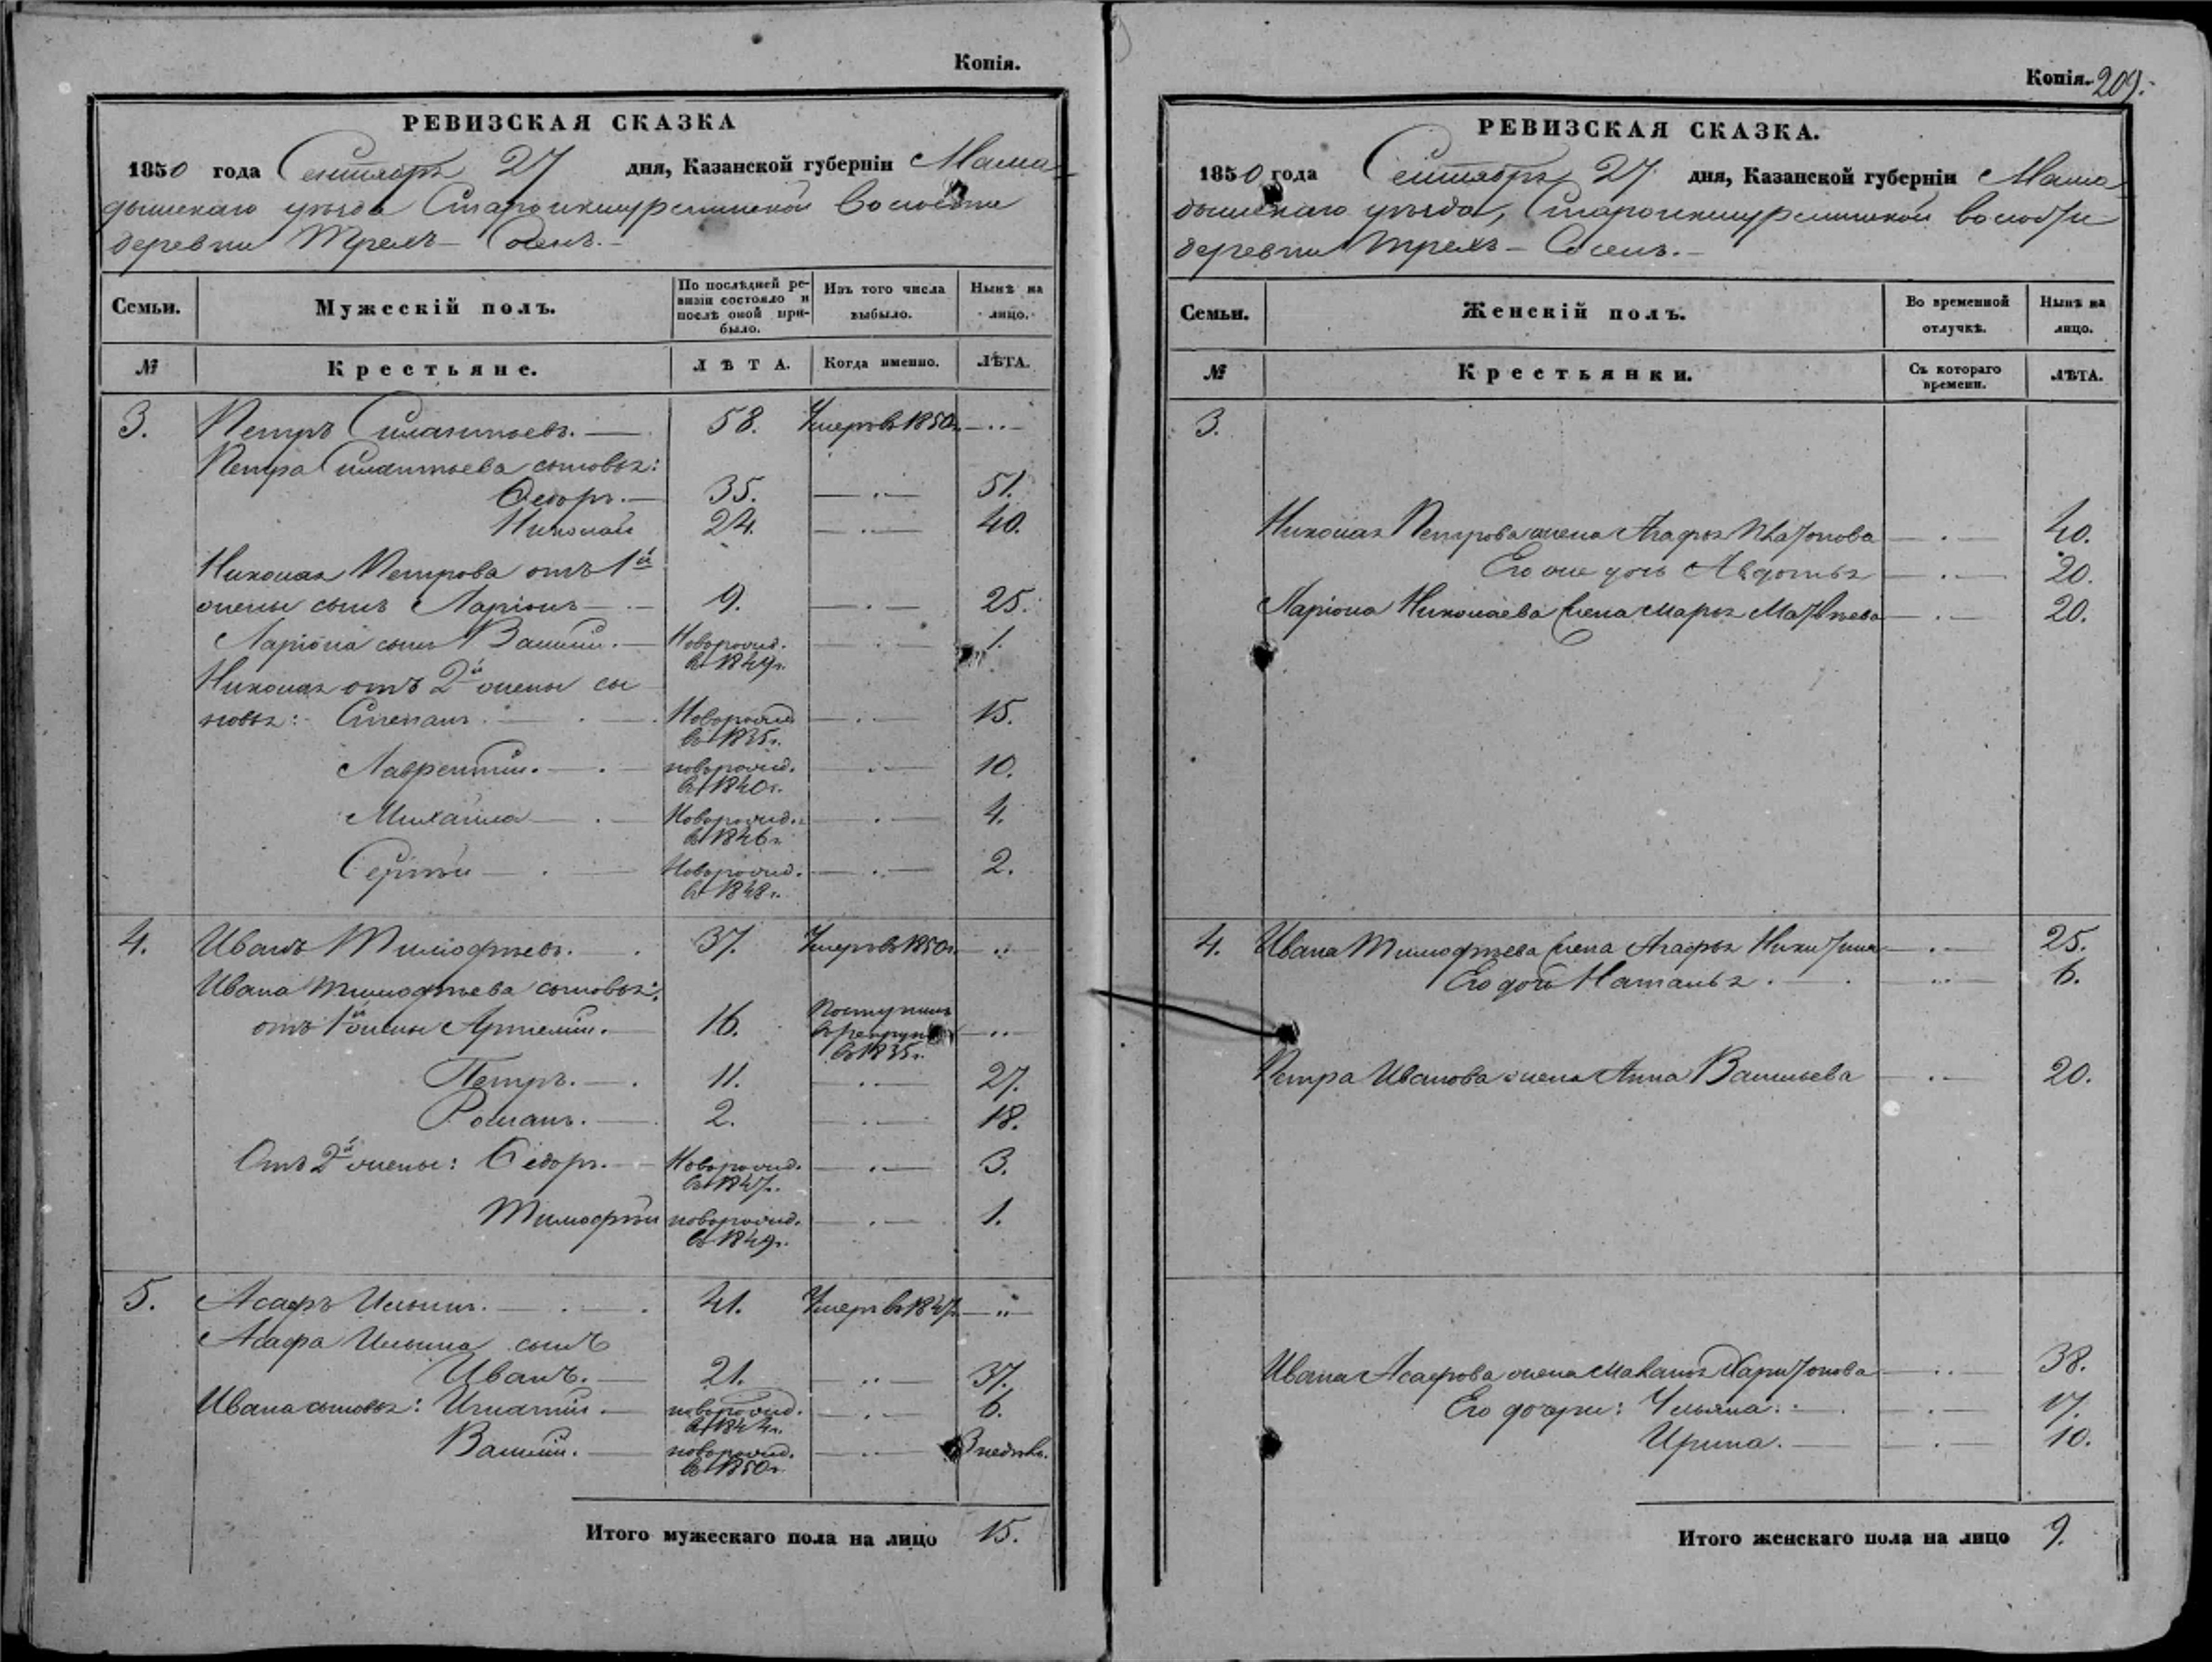 Копія.
РЕВИЗСКАЯ СКАЗКА
1850 года Сентября 27 дня, Казанской губерніи Мама-
дышскаго уѣзда Староикшурминской волости
деревни Трехъ-Сосенъ.
Семьи. Мужескій полъ. По послѣдней ревизіи состояло и послѣ оной прибыло. Изъ того числа выбыло. Нынѣ на лицо.
№ Крестьяне. ЛѢТА. Когда именно. ЛѢТА.
3. Петръ Силантьевъ. 58. Умеръ въ 1850г.
Петра Силантьева сыновья:
Ѳедоръ. 35. 51.
Николай 24. 40.
Николая Петрова отъ 1й
жены сынъ Ларіонъ 9. 25.
Ларіона сынъ Василій. Новорожд. въ 1849г. 1.
Николая отъ 2й жены сы-
новья: Степанъ. Новорожд. въ 1835г. 15.
Лаврентій. новорожд. въ 1840г. 10.
Михайла Новорожд. въ 1846г. 4.
Сергѣй Новорожд. въ 1848г. 2.
4. Иванъ Тимофѣевъ. 37. Умеръ въ 1850г.
Ивана Тимофѣева сыновья:
отъ 1й жены Артемій. 16. Поступилъ въ рекруты въ 1835г.
Петръ. 11. 27.
Романъ. 2. 18.
Отъ 2й жены: Ѳедоръ. Новорожд. въ 1847г. 3.
Тимофѣй новорожд. въ 1849г. 1.
5. Асафъ Ильинъ. 41. Умеръ въ 1847г.
Асафа Ильина сынъ
Иванъ. 21. 37.
Ивана сыновья: Игнатій. новорожд. въ 1844г. 6.
Василій. новорожд. въ 1850г. 3 недѣль.
Итого мужескаго пола на лицо 15.
Копія. 209.
РЕВИЗСКАЯ СКАЗКА.
1850 года Сентября 27 дня, Казанской губерніи Мама-
дышскаго уѣзда, Староикшурминской волости
деревни Трехъ-Сосенъ.
Семьи. Женскій полъ. Во временной отлучкѣ. Нынѣ на лицо.
№ Крестьянки. Съ котораго времени. ЛѢТА.
3.
Николая Петрова жена Агафья Платонова 40.
Его же дочь Авдотья 20.
Ларіона Николаева жена Марья Матвѣева 20.
4. Ивана Тимофѣева жена Агафья Никитина 25.
Его дочь Наталья. 6.
Петра Иванова жена Анна Васильева 20.
Ивана Асафова жена Маланья Харитонова 38.
Его дочери: Ульяна. 17.
Ирина. 10.
Итого женскаго пола на лицо 9.